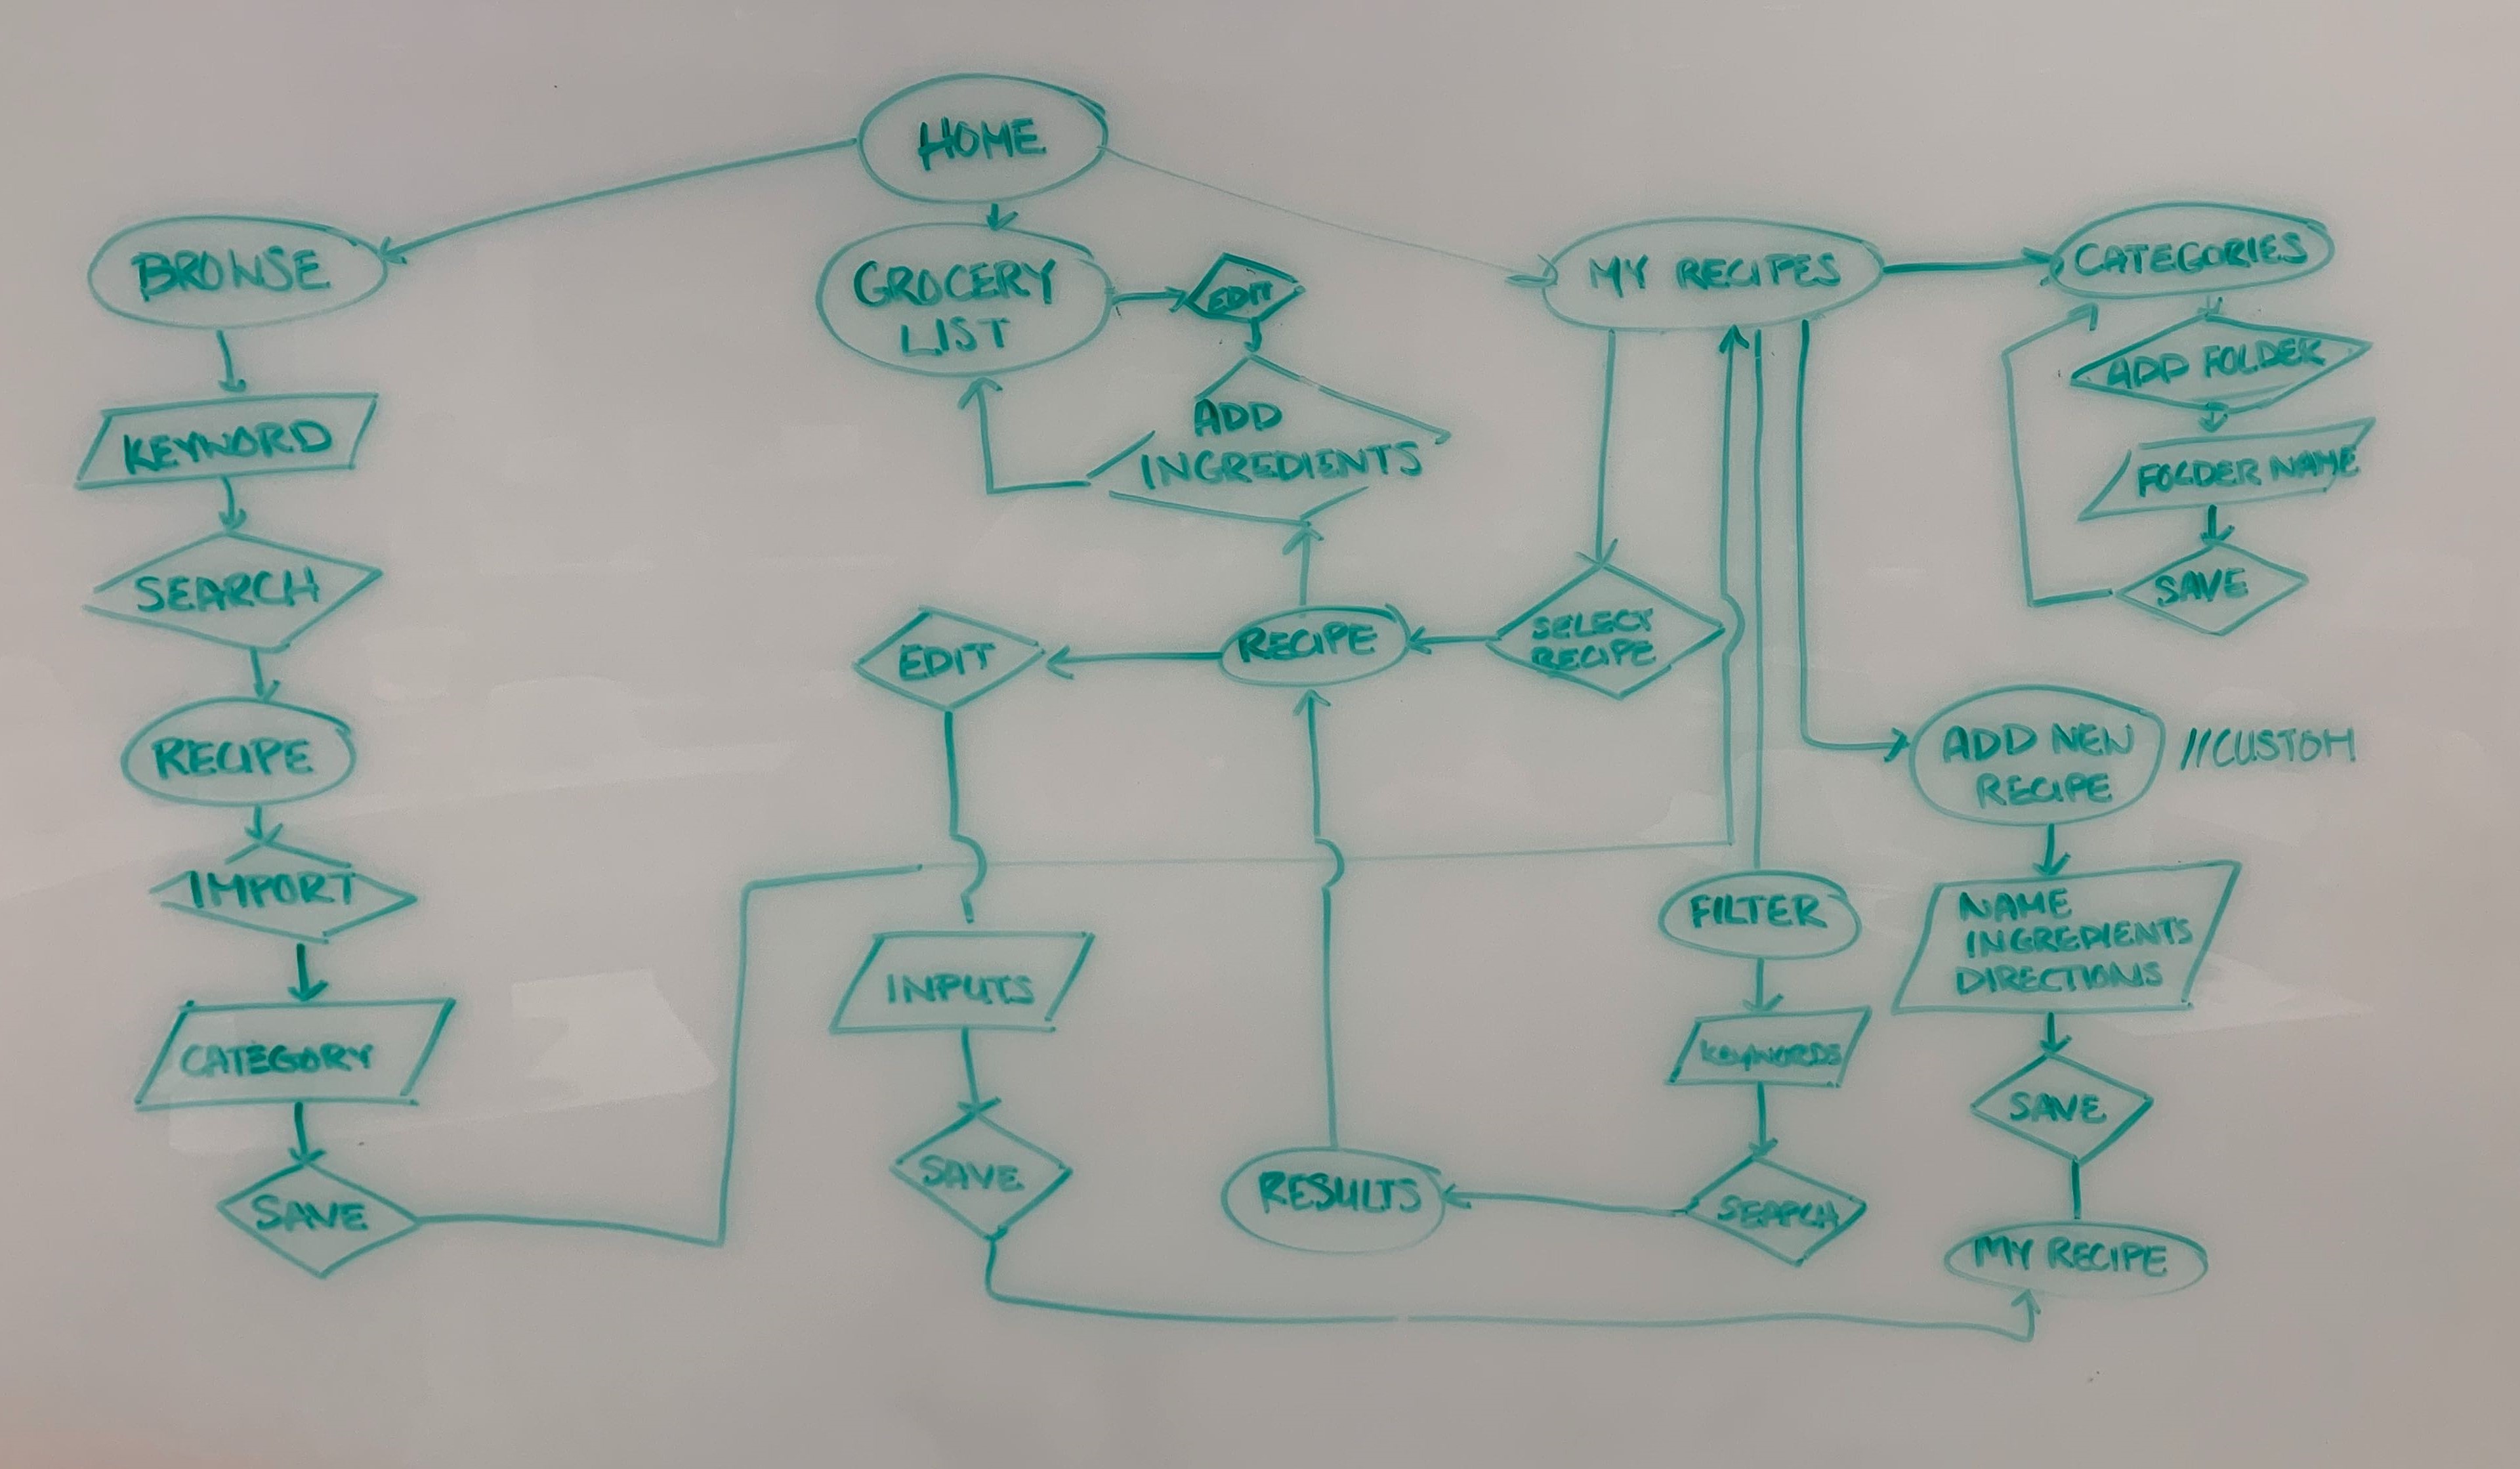 HOME
BROWSE
KEYWORD
SEARCH
RECIPE
IMPORT
CATEGORY
SAVE
GROCERY
LIST
EDIT
ADD
INGREDIENTS
MY RECIPES
SELECT
RECIPE
RECIPE
EDIT
INPUTS
SAVE
FILTER
KEYWORDS
SEARCH
RESULTS
CATEGORIES
ADD FOLDER
FOLDER NAME
SAVE
ADD NEW
RECIPE
//CUSTOM
NAME
INGREDIENTS
DIRECTIONS
SAVE
MY RECIPE